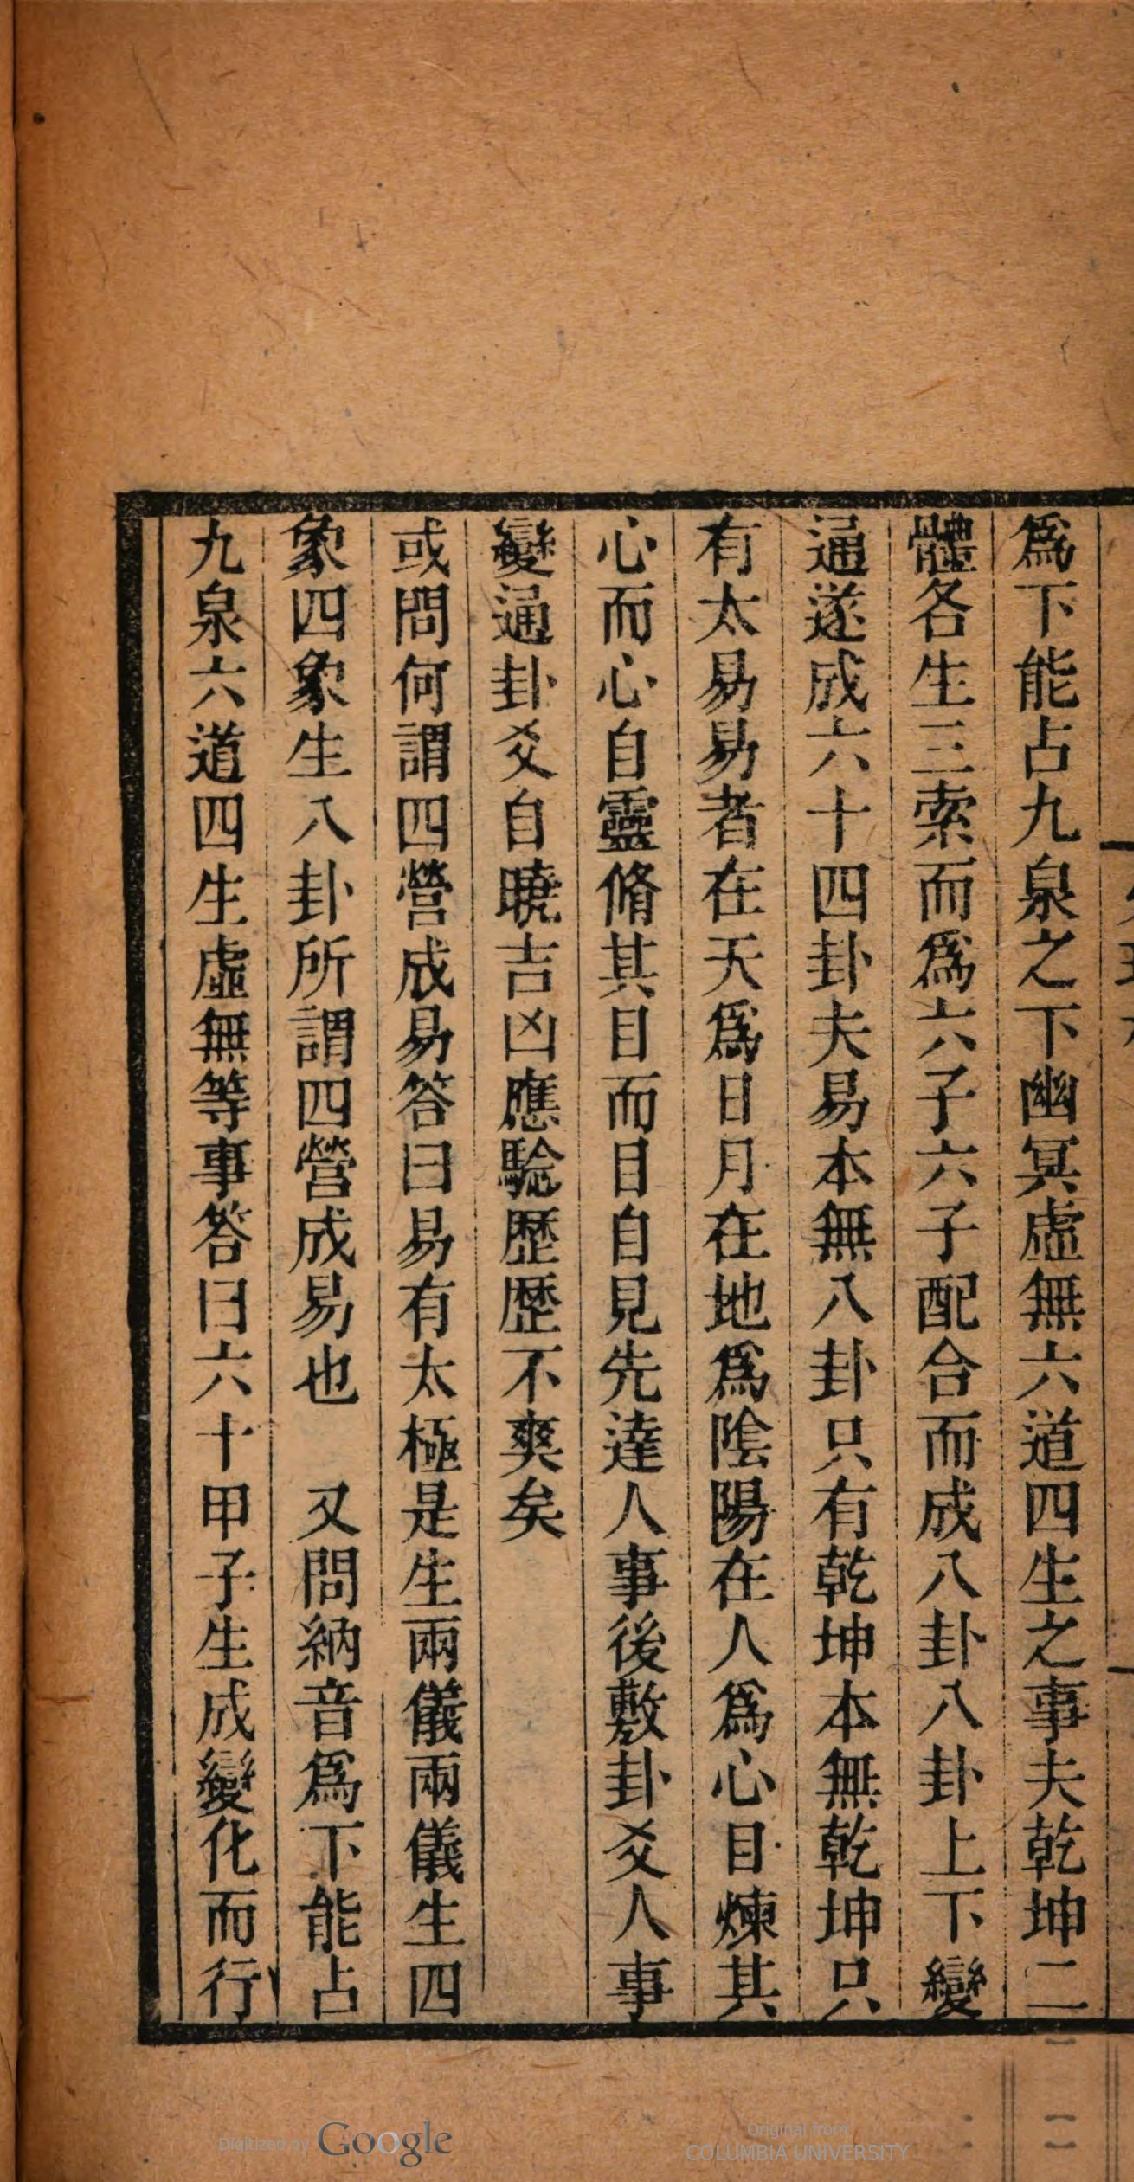 爲下能占九泉之下幽冥虛無六道四生之事夫乾坤二
體各生三索而爲六子六子配合而成八卦八卦上下變
通遂成六十四卦夫易本無八卦只有乾坤本無乾坤只
有太易易者在天爲日月在地爲陰陽在人爲心目煉其
心而心自靈脩其目而目自見先達人事後敷卦爻人事
變通卦爻自曉吉凶應驗歷歷不爽矣
或問何謂四營成易答曰易有太極是生兩儀兩儀生四
象四象生八卦所謂四營成易也　又問納音爲下能占
九泉六道四生虛無等事答曰六十甲子生成變化而行
Digitized by Google
Original from
COLUMBIA UNIVERSITY